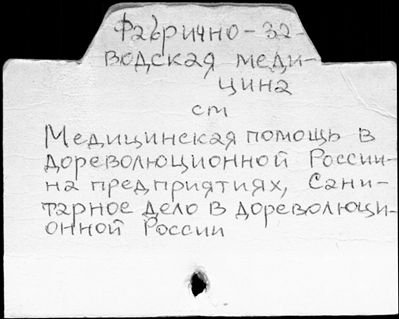 Фабрично-за-
водская меди-
цина
см
Медицинская помощь в
дореволюционной России-
на предприятиях, Сани-
тарное дело в дореволюци-
онной России